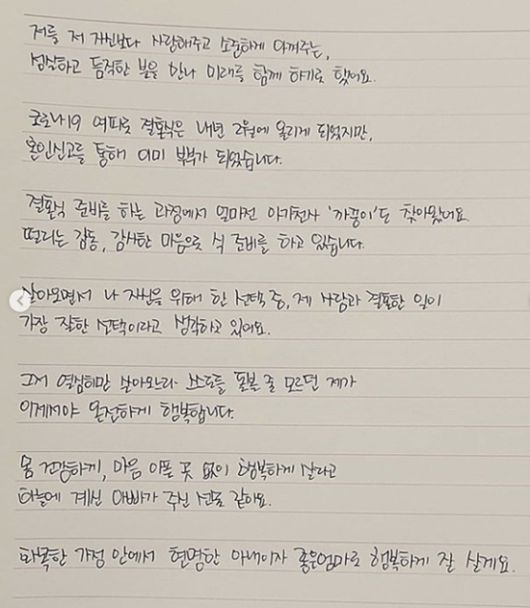 저를 저 자신보다 사랑해주고 소중하게 아껴주는,
성실하고 듬직한 분을 만나 미래를 함께 하기로 했어요.
코로나19 여파로 결혼식은 내년 2월에 올리게 되었지만,
혼인신고를 통해 이미 부부가 되었습니다.
결혼식 준비를 하는 과정에서 얼마전 아기천사 '까꿍이'도 찾아왔어요.
떨리는 감동, 감사한 마음으로 식 준비를 하고 있습니다.
살아오면서 나 자신을 위해 한 선택 중, 제 사람과 결혼한 일이
가장 잘한 선택이라고 생각하고 있어요.
그저 열심히만 살아오느라 스스로를 돌볼 줄 모르던 제가
이제서야 온전하게 행복합니다.
몸 건강하게, 마음 아플 곳 없이 행복하게 살라고
하늘에 계신 아빠가 주신 선물 같아요.
화목한 가정 안에서 현명한 아내이자 좋은엄마로 행복하게 잘 살게요.